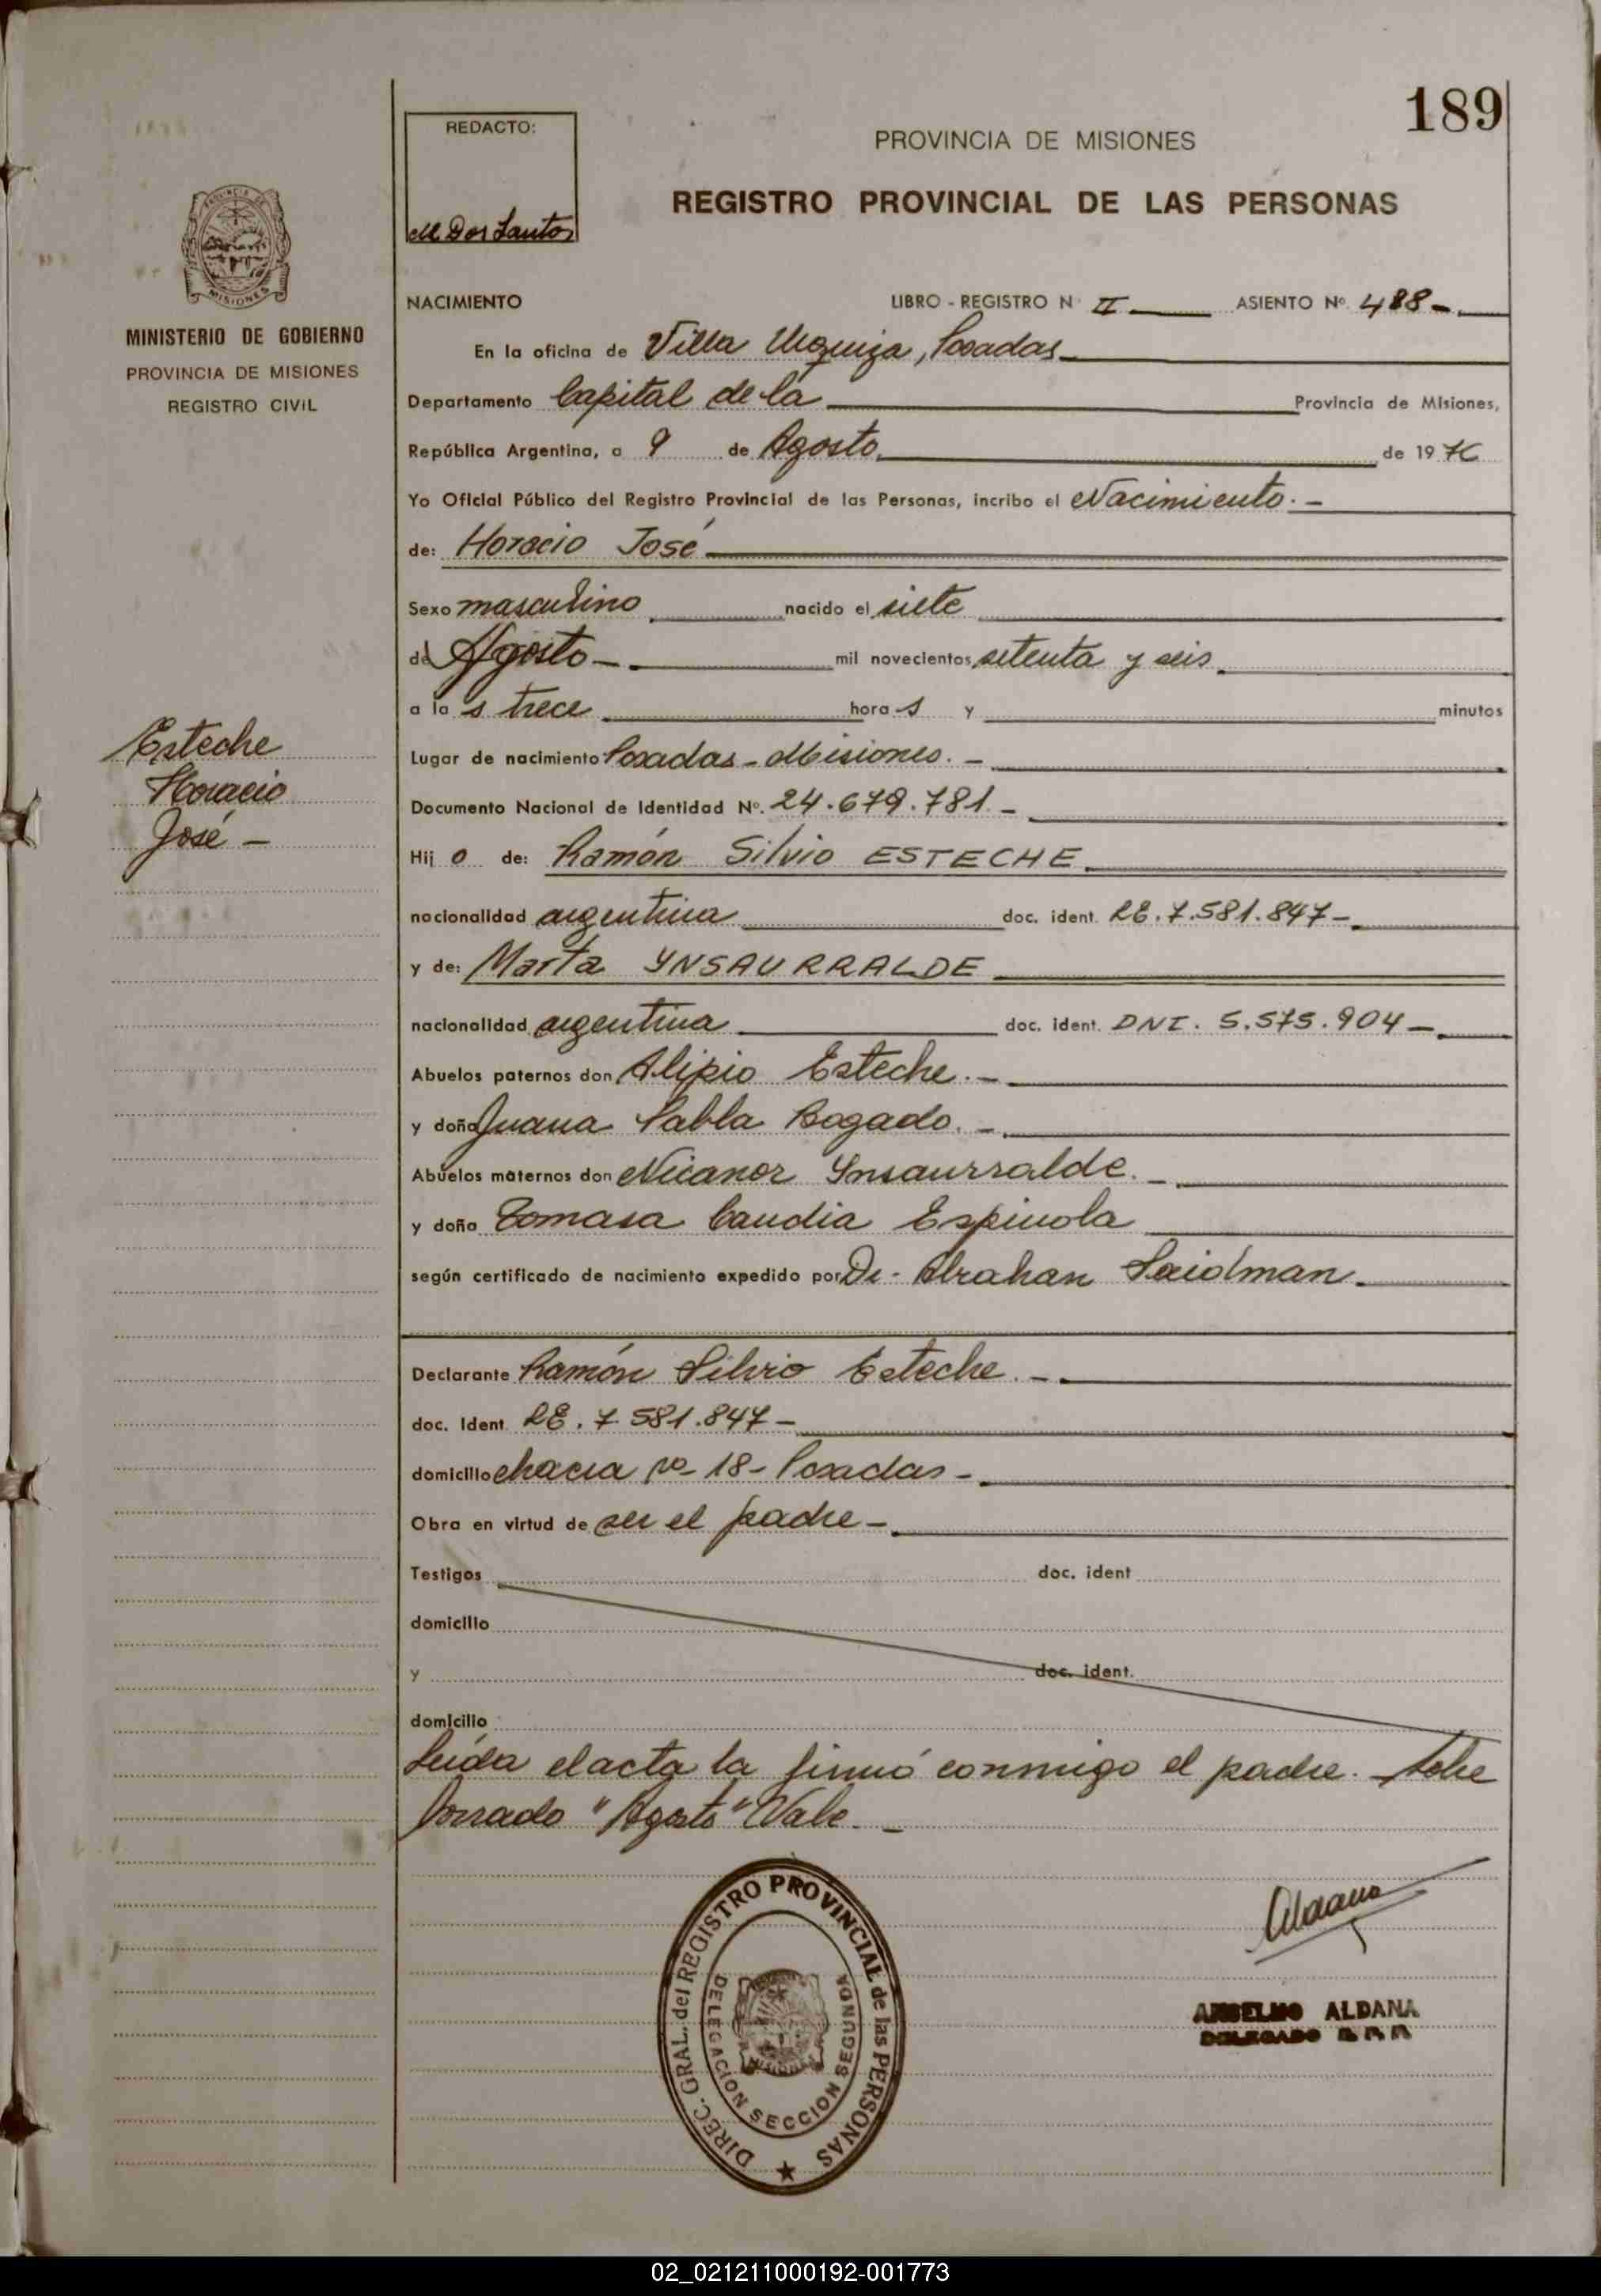 189
REDACTO:
M Dos Santos
PROVINCIA DE MISIONES
REGISTRO PROVINCIAL DE LAS PERSONAS
PROVINCIA DE
MISIONES
MINISTERIO DE GOBIERNO
PROVINCIA DE MISIONES
REGISTRO CIVIL
NACIMIENTO LIBRO - REGISTRO N II ASIENTO Nº 488-
En la oficina de Villa Urquiza, Posadas
Departamento Capital de la Provincia de Misiones,
República Argentina, a 9 de Agosto de 1976
Yo Oficial Público del Registro Provincial de las Personas, incribo el Nacimiento.-
de: Horacio José
Sexo masculino nacido el siete
de Agosto - mil novecientos setenta y seis
a las trece horas y minutos
Lugar de nacimiento Posadas - Misiones. -
Documento Nacional de Identidad Nº. 24.679.781.-
Hijo de: Ramón Silvio ESTECHE
nacionalidad argentina doc. ident. LE. 7.581.847-
y de: Marta YNSAURRALDE
nacionalidad argentina doc. ident. DNI. 5.575.904-
Abuelos paternos don Alipio Esteche.-
y doña Juana Pabla Bogado. -
Abuelos maternos don Nicanor Ynsaurralde. -
y doña Tomasa Candia Espinola
según certificado de nacimiento expedido por Dr- Abrahan Saidman
Esteche
Horacio
José -
Declarante Ramón Silvio Esteche. -
doc. Ident. LE. 7.581.847-
domicilio chacra nº- 18- Posadas-
Obra en virtud de ser el padre-
Testigos doc. ident
domicilio
y doc. ident.
domicilio
Leída el acta la firmó conmigo el padre. Sobre
borrado "Agosto" Vale. -
DIREC. GRAL. del REGISTRO PROVINCIAL de las PERSONAS
DELEGACION SECCION SEGUNDA
MISIONES
Aldana
ANSELMO ALDANA
DELEGADO R. P. P.
02_021211000192-001773